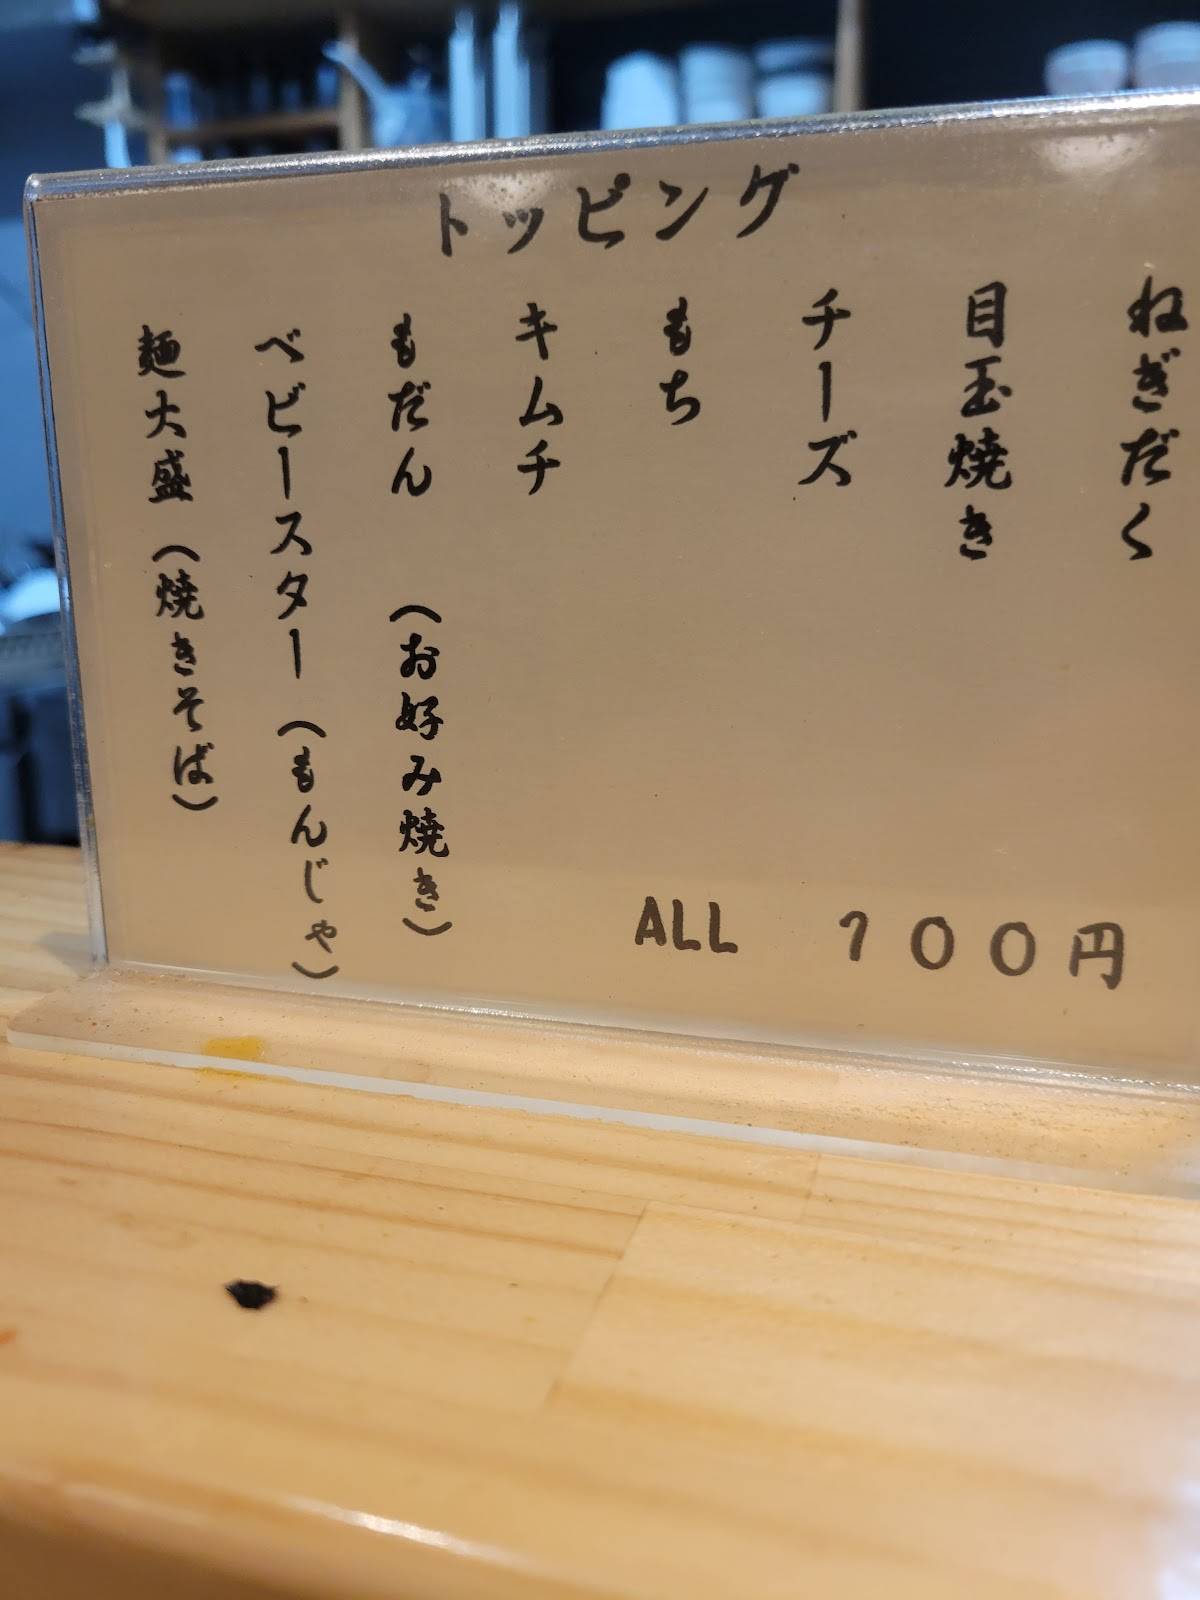 トッピング
ねぎだく
目玉焼き
チーズ
もち
キムチ
もだん (お好み焼き)
ベビースター (もんじゃ)
麺大盛 (焼きそば)
ALL 100円